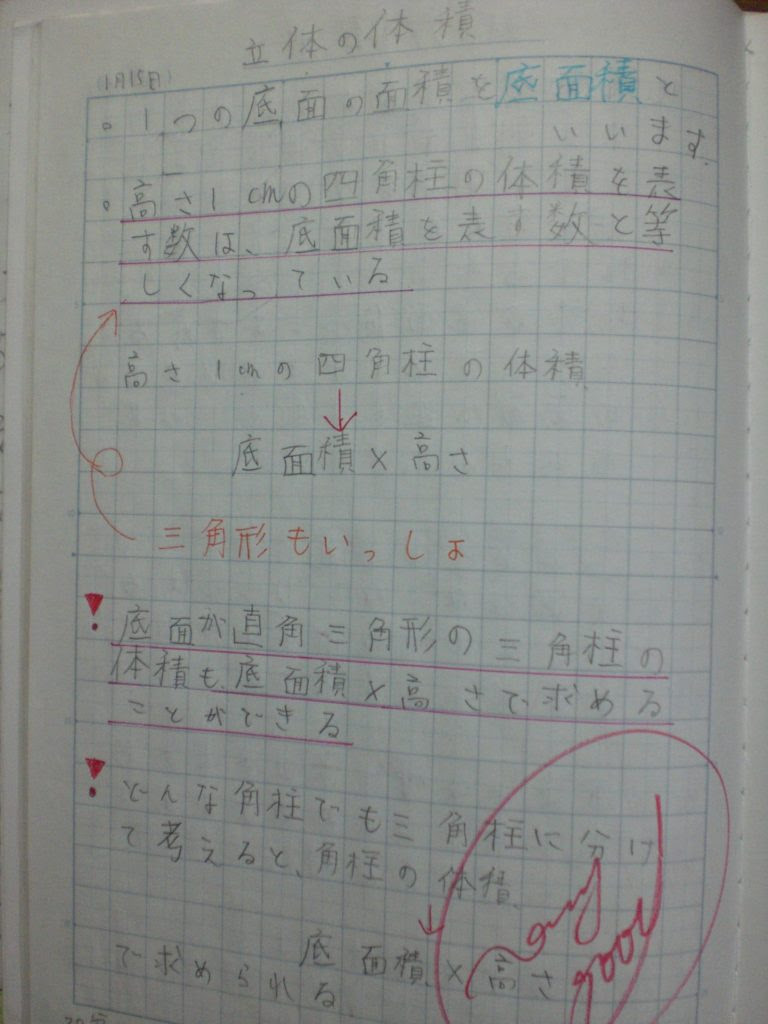 立体の体積
(1月15日)
。1つの底面の面積を底面積と
いいます。
。高さ1cmの四角柱の体積を表
す数は、底面積を表す数と等
しくなっている
高さ1cmの四角柱の体積
↓
底面積×高さ
三角形もいっしょ
! 底面が直角三角形の三角柱の
体積も、底面積×高さで求める
ことができる
! どんな角柱でも三角柱に分け
て考えると、角柱の体積
↓
底面積×高さ
で求められる
good